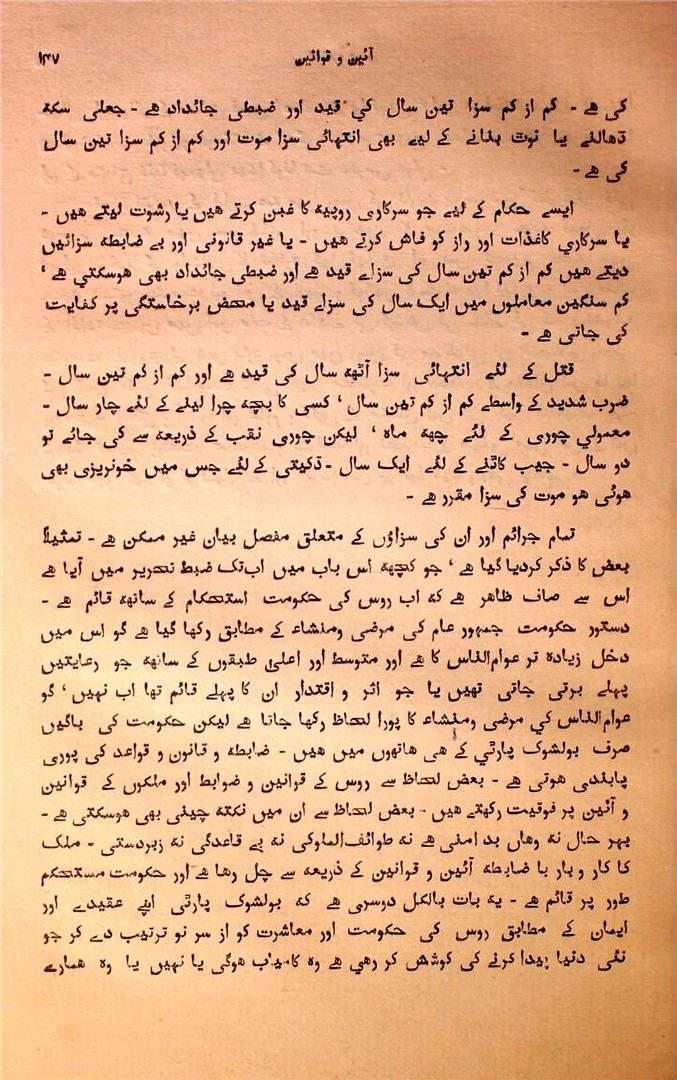 آئین و قوانین ۱۴۷
کی ہے - کم از کم سزا تین سال کی قید اور ضبطی جائداد ہے - جعلی سکہ
ڈھالنے یا نوٹ بنانے کے لیے بھی انتہائی سزا موت اور کم از کم سزا تین سال
کی ہے -
ایسے حکام کے لیے جو سرکاری روپیہ کا غبن کرتے ہیں یا رشوت لیتے ہیں -
یا سرکاری کاغذات اور راز کو فاش کرتے ہیں - یا غیر قانونی اور بے ضابطہ سزائیں
دیتے ہیں کم از کم تین سال کی سزاے قید ہے اور ضبطی جائداد بھی ہوسکتی ہے ‘
کم سنگین معاملوں میں ایک سال کی سزاے قید یا محض برخاستگی پر کفایت
کی جاتی ہے -
قتل کے لئے انتہائی سزا آٹھ سال کی قید ہے اور کم از کم تین سال -
ضرب شدید کے واسطے کم از کم تین سال ‘ کسی کا بچہ چرا لینے کے لئے چار سال -
معمولی چوری کے لئے چھہ ماہ ‘ لیکن چوری نقب کے ذریعہ سے کی جائے تو
دو سال - جیب کاٹنے کے لئے ایک سال - ڈکیتی کے لئے جس میں خونریزی بھی
ہوئی ہو موت کی سزا مقرر ہے -
تمام جرائم اور ان کی سزاؤں کے متعلق مفصل بیان غیر ممکن ہے - تمثیلاً
بعض کا ذکر کردیا گیا ہے ‘ جو کچھہ اس باب میں اب تک ضبط تحریر میں آیا ہے
اس سے صاف ظاہر ہے کہ اب روس کی حکومت استحکام کے ساتھہ قائم ہے -
دستور حکومت جمہور عام کی مرضی ومنشاء کے مطابق رکھا گیا ہے گو اس میں
دخل زیادہ تر عوام الناس کا ہے اور متوسط اور اعلیٰ طبقوں کے ساتھہ جو رعایتیں
پہلے برتی جاتی تھیں یا جو اثر و اقتدار ان کا پہلے قائم تھا اب نہیں ‘ گو
عوام الناس کی مرضی ومنشاء کا پورا لحاظ رکھا جاتا ہے لیکن حکومت کی باگیں
صرف بولشوک پارٹی کے ہی ہاتھوں میں ہیں - ضابطہ و قانون و قواعد کی پوری
پابندی ہوتی ہے - بعض لحاظ سے روس کے قوانین و ضوابط اور ملکوں کے قوانین
و آئین پر فوقیت رکھتے ہیں - بعض لحاظ سے ان میں نکتہ چینی بھی ہوسکتی ہے -
بہر حال نہ وہاں بد امنی ہے نہ طوائف الملوکی نہ بے قاعدگی نہ زبردستی - ملک
کا کار و بار با ضابطہ آئین و قوانین کے ذریعہ سے چل رہا ہے اور حکومت مستحکم
طور پر قائم ہے - یہ بات بالکل دوسری ہے کہ بولشوک پارٹی اپنے عقیدے اور
ایمان کے مطابق روس کی حکومت اور معاشرت کو از سر نو ترتیب دے کر جو
نئی دنیا پیدا کرنے کی کوشش کر رہی ہے وہ کامیاب ہوگی یا نہیں یا وہ ہمارے